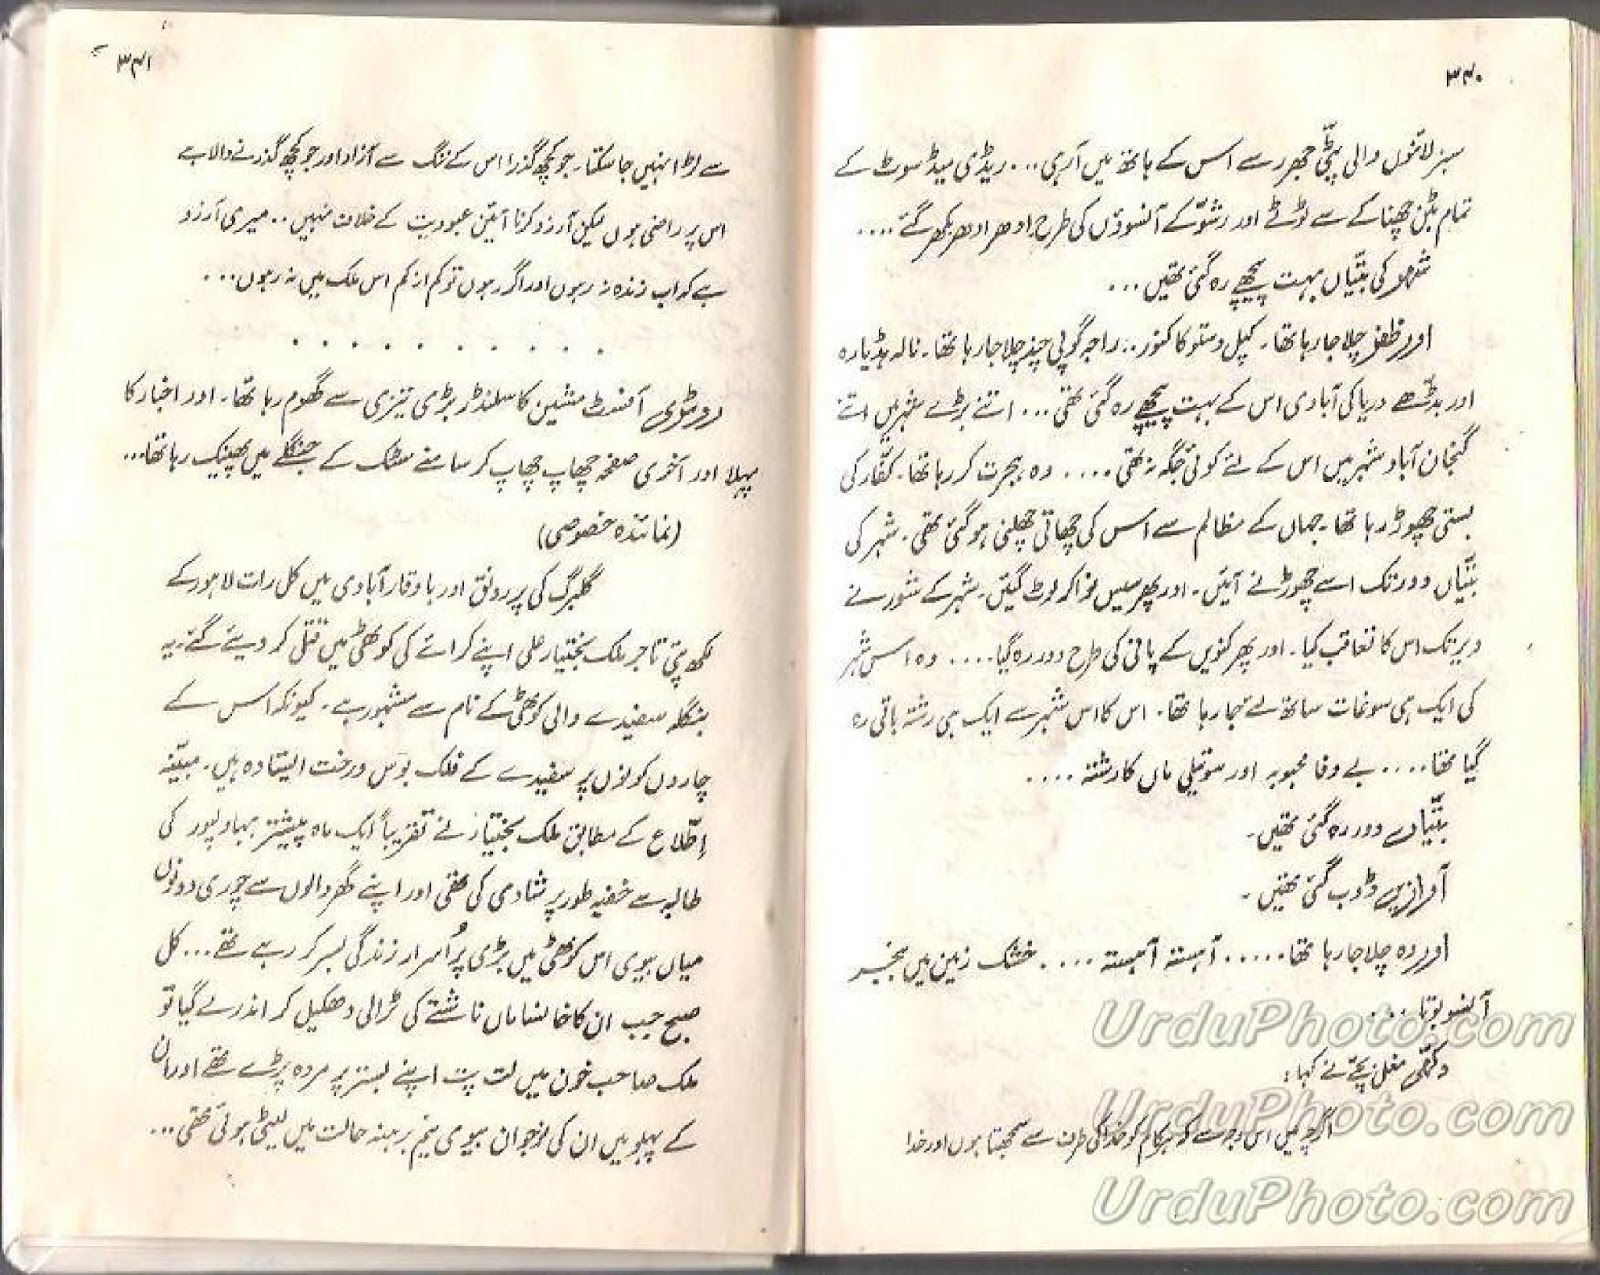 ۳۴۰
سبز لائنوں والی پٹّی جھبر سے اس کے ہاتھ میں آ رہی ... ریڈی میڈ سوٹ کے
تمام بٹن چھناکے سے ٹوٹے اور رشّو کے آنسوؤں کی طرح ادھر ادھر بکھر گئے ....
شہر کی بتّیاں بہت پیچھے رہ گئی تھیں ...
اور ظفر چلا جا رہا تھا۔ کپل وستو کا کنور .. راجہ گوپی چند چلا جا رہا تھا۔ نالہ ہڈیارہ
اور بڈّھے دریا کی آبادی اس کے بہت پیچھے رہ گئی تھی ... اتنے بڑے شہر میں اتنے
گنجان آباد شہر میں اس کے لئے کوئی جگہ نہ تھی .... وہ ہجرت کر رہا تھا۔ کفّار کی
بستی چھوڑ رہا تھا۔ جہاں کے مظالم سے اس کی چھاتی چھلنی ہو گئی تھی۔ شہر کی
بتّیاں دور تک اسے چھوڑنے آئیں۔ اور پھر سیس نوا کر لوٹ گئیں۔ شہر کے شور نے
دیر تک اس کا تعاقب کیا۔ اور پھر کنویں کے پانی کی طرح دور رہ گیا .... وہ اس شہر
کی ایک ہی سوغات ساتھ لئے جا رہا تھا۔ اس کا اس شہر سے ایک ہی رشتہ باقی رہ
گیا تھا .... بے وفا محبوبہ اور سوتیلی ماں کا رشتہ ....
بتّیاں دور رہ گئی تھیں۔
آوازیں ڈوب گئی تھیں۔
اور وہ چلا جا رہا تھا ..... آہستہ آہستہ .... خشک زمین میں بنجر
آنسو بوتا ....
دکھی مغل بچّے نے کہا:
اگرچہ میں اس وجہ سے کہ ہر کام کو خدا کی طرف سے سمجھتا ہوں اور خدا
۳۴۱
سے لڑا نہیں جا سکتا۔ جو کچھ گذرا اس کے رنگ سے آزاد اور جو کچھ گذرنے والا ہے
اس پر راضی ہوں لیکن آرزو کرنا آئین عبودیت کے خلاف نہیں .. میری آرزو
ہے کہ اب زندہ نہ رہوں اور اگر رہوں تو کم از کم اس ملک میں نہ رہوں ...
. . . . . . . . . .
روٹری آفسٹ مشین کا سلنڈر بڑی تیزی سے گھوم رہا تھا۔ اور اخبار کا
پہلا اور آخری صفحہ چھاپ چھاپ کر سامنے سٹک کے جنگلے میں پھینک رہا تھا ...
(نمائندہ خصوصی)
گلبرگ کی پر رونق اور باوقار آبادی میں کل رات لاہور کے
لکھ پتی تاجر ملک بختیار علی اپنے کرائے کی کوٹھی میں قتل کر دیئے گئے۔ یہ
بنگلہ سفیدے والی کوٹھی کے نام سے مشہور ہے۔ کیونکہ اس کے
چاروں کونوں پر سفیدے کے فلک بوس درخت ایستادہ ہیں۔ مبیّنہ
اطّلاع کے مطابق ملک بختیار نے تقریباً ایک ماہ پیشتر بہاولپور کی
طالبہ سے خفیہ طور پر شادی کی تھی اور اپنے گھر والوں سے چوری دونوں
میاں بیوی اس کوٹھی میں بڑی پُر اسرار زندگی بسر کر رہے تھے ... کل
صبح جب ان کا خانساماں ناشتے کی ٹرالی دھکیل کر اندر لے گیا تو
ملک صاحب خون میں لت پت اپنے بستر پر مردہ پڑے تھے اور ان
کے پہلو میں ان کی نوجوان بیوی نیم برہنہ حالت میں لیٹی ہوئی تھی ...
UrduPhoto.com
UrduPhoto.com
UrduPhoto.com